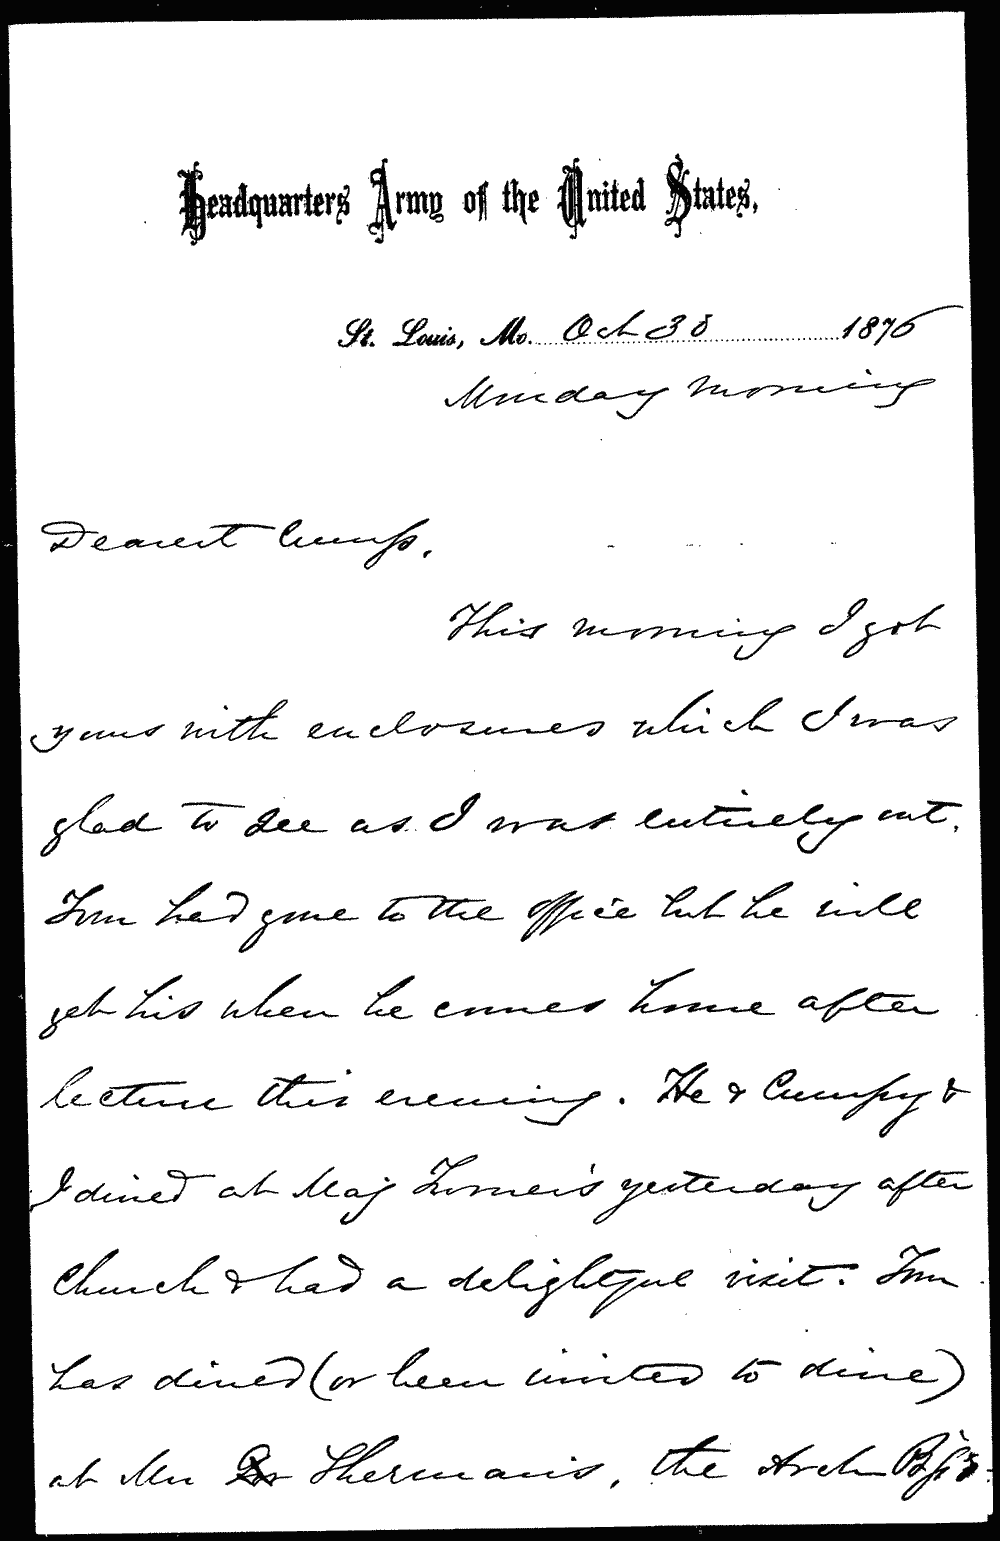 Headquarters Army of the United States,
St. Louis, Mo. Oct 30 1876
Monday morning
Dearest Cump,
This morning I got
yours with enclosures which I was
glad to see as I was entirely out.
Tom had gone to the office but he will
get his when he comes home after
lecture this evening. He & Cumpy &
I dined at Maj Turner's yesterday after
Church & had a delightful visit. Tom
has dined (or been invited to dine)
at Mrs Shermans, the Arch Bp's